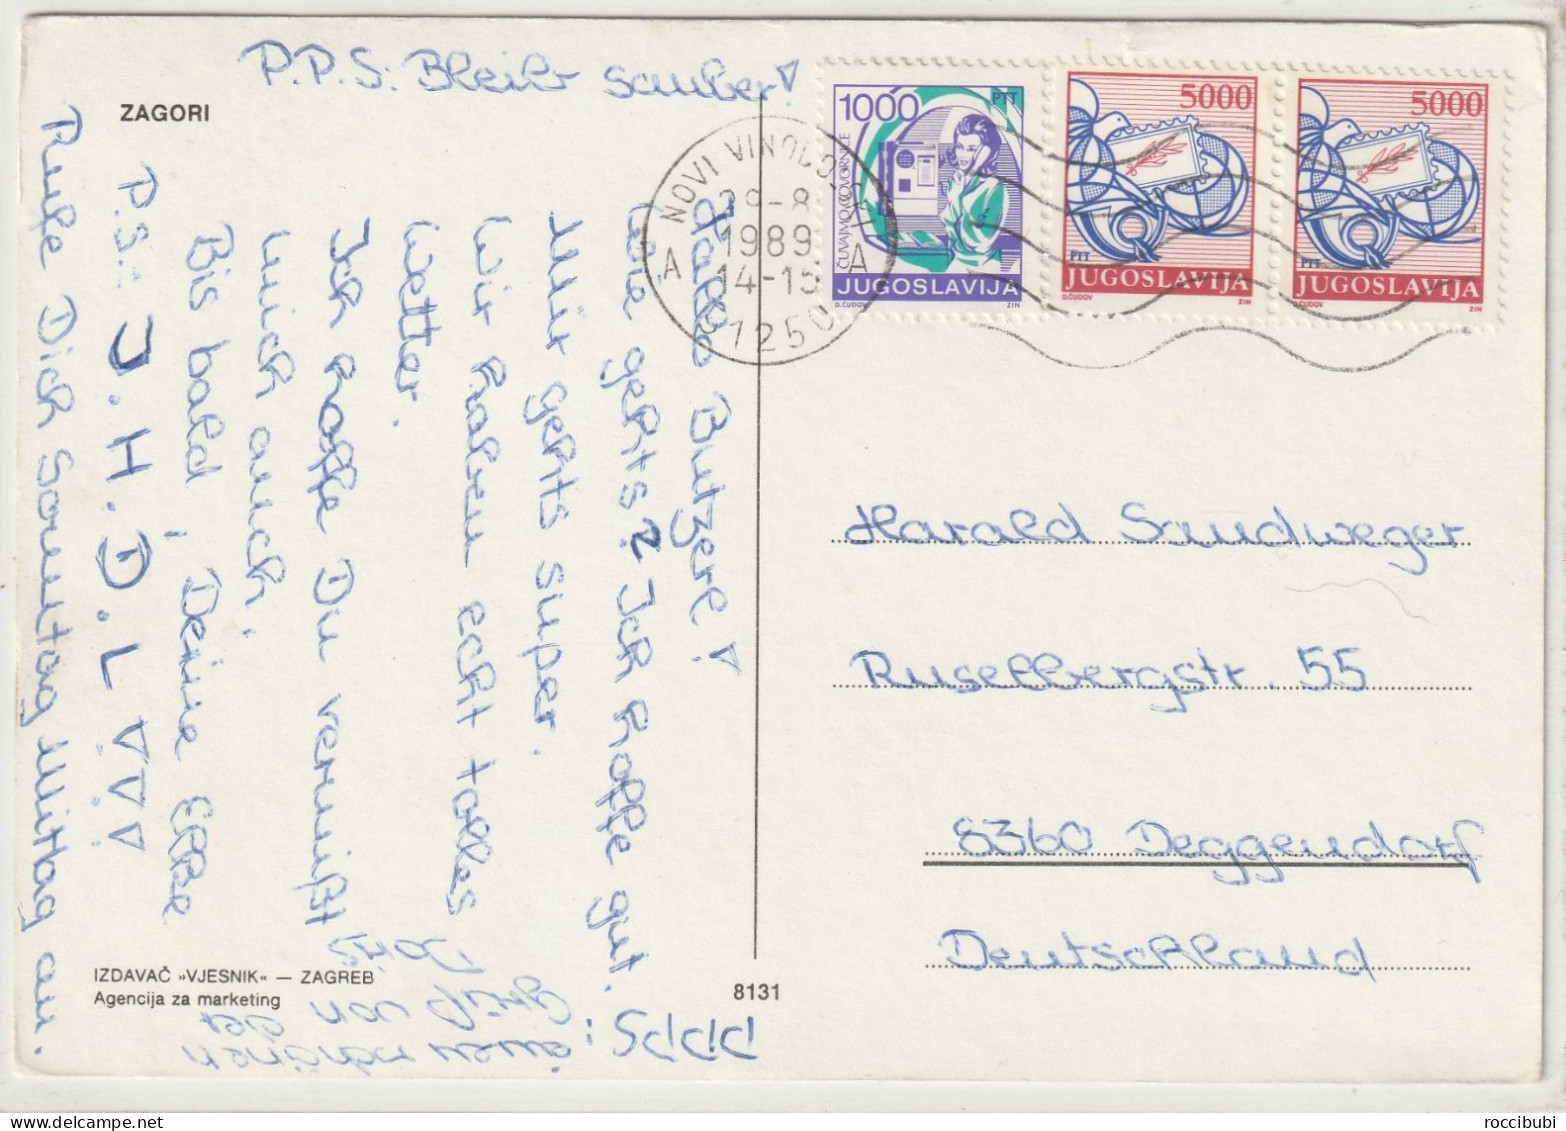 ZAGORI
P.P.S: Bleib sauber!
Hallo Butzerl!
Wie gehts? Ich hoffe gut.
Mir gehts super.
Wir haben echt tolles
Wetter.
Ich hoffe Du vermißt
mich auch.
Bis bald, Deine Elke
P.S.: I.H.D.L!!!
Rufe Dich Sonntag Mittag an.
PPPS:
schönen
Gruß von
der
IZDAVAČ »VJESNIK« — ZAGREB
Agencija za marketing
8131
NOVI VINODOLSKI
28-8
1989
14-15
A A
51250
1000
PTT
ČUVAJMO GOVORNICE
JUGOSLAVIJA
D.ČUDOV ZIN
5000
PTT
JUGOSLAVIJA
D.ČUDOV ZIN
5000
PTT
JUGOSLAVIJA
D.ČUDOV ZIN
Harald Sandweger
Ruselbergstr. 55
8360 Deggendorf
Deutschland
roccibubi